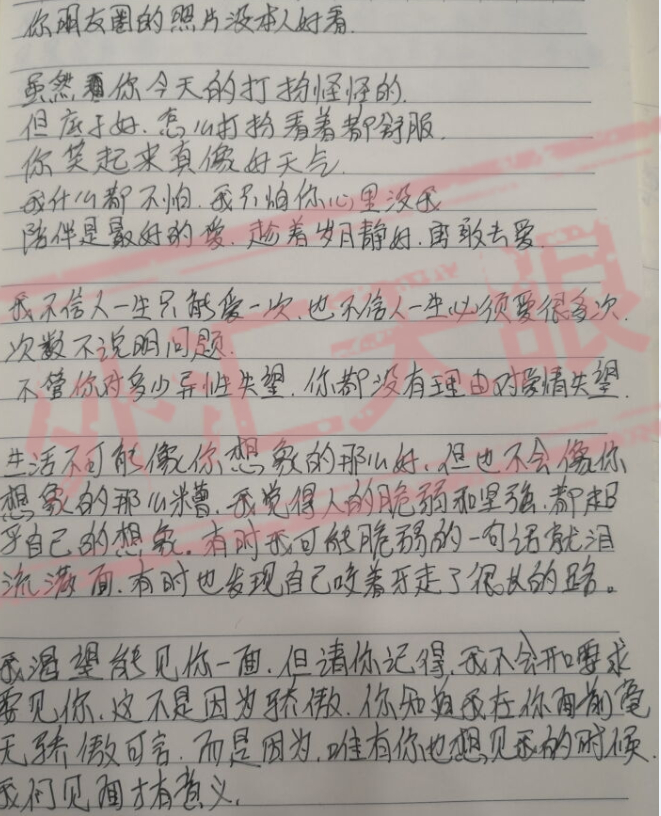 你朋友圈的照片没本人好看.
虽然看你今天的打扮怪怪的.
但底子好.怎么打扮看着都舒服.
你笑起来真像好天气.
我什么都不怕.我只怕你心里没我
陪伴是最好的爱.趁着岁月静好.勇敢去爱.
我不信人一生只能爱一次.也不信人一生必须爱很多次.
次数不说明问题.
不管你对多少异性失望.你都没有理由对爱情失望.
生活不可能像你想象的那么好.但也不会像你
想象的那么糟.我觉得人的脆弱和坚强.都超
乎自己的想象.有时我可能脆弱的一句话就泪
流满面.有时也发现自己咬着牙走了很长的路。
我渴望能见你一面.但请你记得.我不会开口要求
要见你.这不是因为骄傲.你知道我在你面前毫
无骄傲可言.而是因为.唯有你也想见我的时候.
我们见面才有意义.
外汇天眼